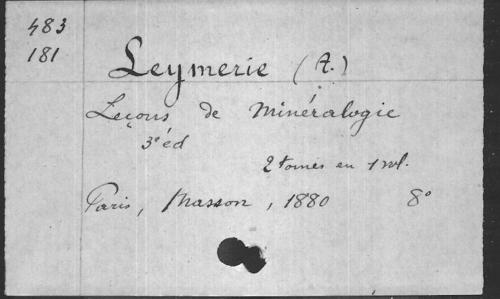 483
181
Leymerie (A.)
Leçons de Minéralogie
3e éd
2 tomes en 1 vol.
Paris, Masson, 1880 8°